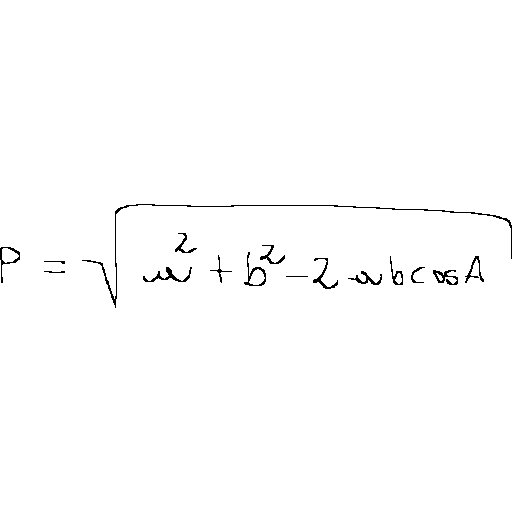 P = √(a² + b² - 2 a b cos A)